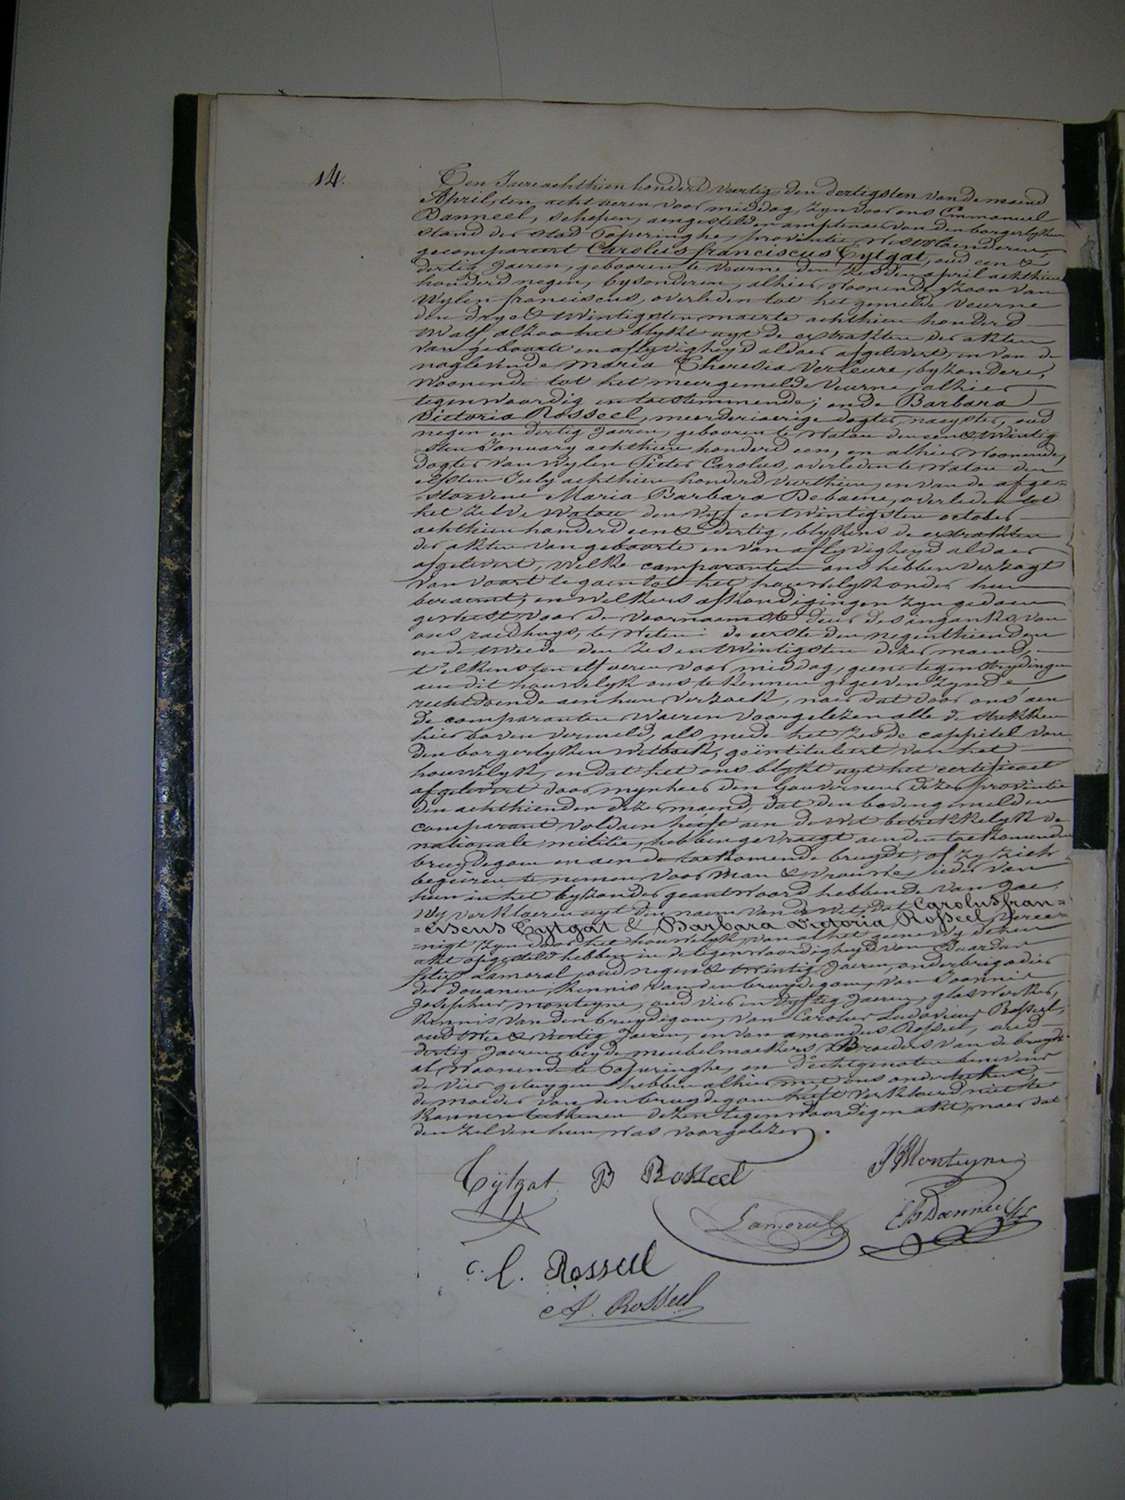 14.
Den Jaere achthien honderd veertig, den dertigsten van de maend
April, ten acht ueren voor middag, zyn voor ons Emmanuel
Banneel, schepen, aengestelden amptenaer van den borgerlyken
stand der stad Poperinghe, provintie Westvlaenderen,
gecompareert Carolus franciscus Cytgat, oud een &
dertig Jaeren, gebooren te Veurne den zesden april achthien
honderd negen, byzonderen, alhier woonende, zoon van
Wylen franciscus, overleden tot het gemelde Veurne
den dry & twintigsten maerte achthien honderd
twalf, alzoo het blykt uyt de extrakten der akten
van geboorte en aflyvigheyd aldaer afgelevert, en van de
naglevende Maria Theresia Verleure, byzondere,
woonende tot het meergemelde Veurne, alhier
tegenwoordig en toestemmende; ende Barbara
Victoria Rosseel, meerderjaerige dogter, naeyster, oud
negen en dertig Jaeren, gebooren te Watou den een & twintig
sten January achthien honderd een, en alhier woonende,
dogter van wylen Pieter Carolus, overleden te Watou den
elfsten July achthien honderd veerthien, en van de afge-
storvene Maria Barbara Debaene, overleden tot
het zelve Watou den vyf en twintigsten october
achthien honderd een & dertig, blykens de extrakten
der akten van geboorte en van aflyvigheyd aldaer
afgelevert, welke comparanten ons hebben verzogt
van voort te gaen tot het houwelyk onder hun
beraemt, en welkers afkondigingen zyn gedaen
geweest voor de voornaemste deur des ingangs van
ons raedhuys, te weten: de eerste den negenthienden
en de tweede den zes en twintigsten dezer maend,
t'elkens ten elf ueren voor middag, geene tegenstrydingen
aen dit houwelyk ons te kennen gegeven zynde,
rechtdoende aen hun verzoek, naer dat door ons aen
de comparanten waeren voorgelezen alle de stukken
hier boven vermeld, als mede het zesde cappittel van
den borgerlyken wetboek, geïntituleert van het
houwelyk, en dat het ons blykt uyt het certificaet
afgelevert door mynheer den Gouverneur dezer provintie
den achthienden dezer maend, dat den bovengemelden
comparant voldaen heeft aen de wet betrekkelyk de
nationale militie, hebben gevraegt aen den toekomenden
bruydegom en aen de toekomende bruydt, of zy zich
begeiren te nemen voor man & vrouwe, ieder van
hun in het byzonder geantwoord hebbende van jae,
wy verklaeren uyt den naem van de wet, dat Carolus fran=
=ciscus Cytgat & Barbara Victoria Rosseel veree-
nigt zyn door het houwelyk, van al het gene wy dezen
akt opgesteld hebben in de tegenwoordigheyd van
Lameral, oud negen & twintig Jaeren, onderbrigadier
der douanen, kennis van den bruydegom, van Joannes
Josephus Monteyne, oud vier en vyftig Jaeren, glaswerker,
kennis van den bruydegom, van Carolus Ludovicus Rosseel,
oud Jaeren, en van amandus Rosseel, oud
dertig Jaeren, beyde meubelmaekers & Broeders van de bruydt
al woonende te Poperinghe, en d'echtgenoten benevens
de vier getuygen hebben alhier met ons onderteekent,
de moeder van den bruydegom heeft verklaerd niet te
konnen teekenen dezen tegenwoordigen akt, naer dat
den zelven hun was voorgelezen.
Cytgat B Rosseel Monteyne
Lameral Banneel
C. L. Rosseel
A. Rosseel